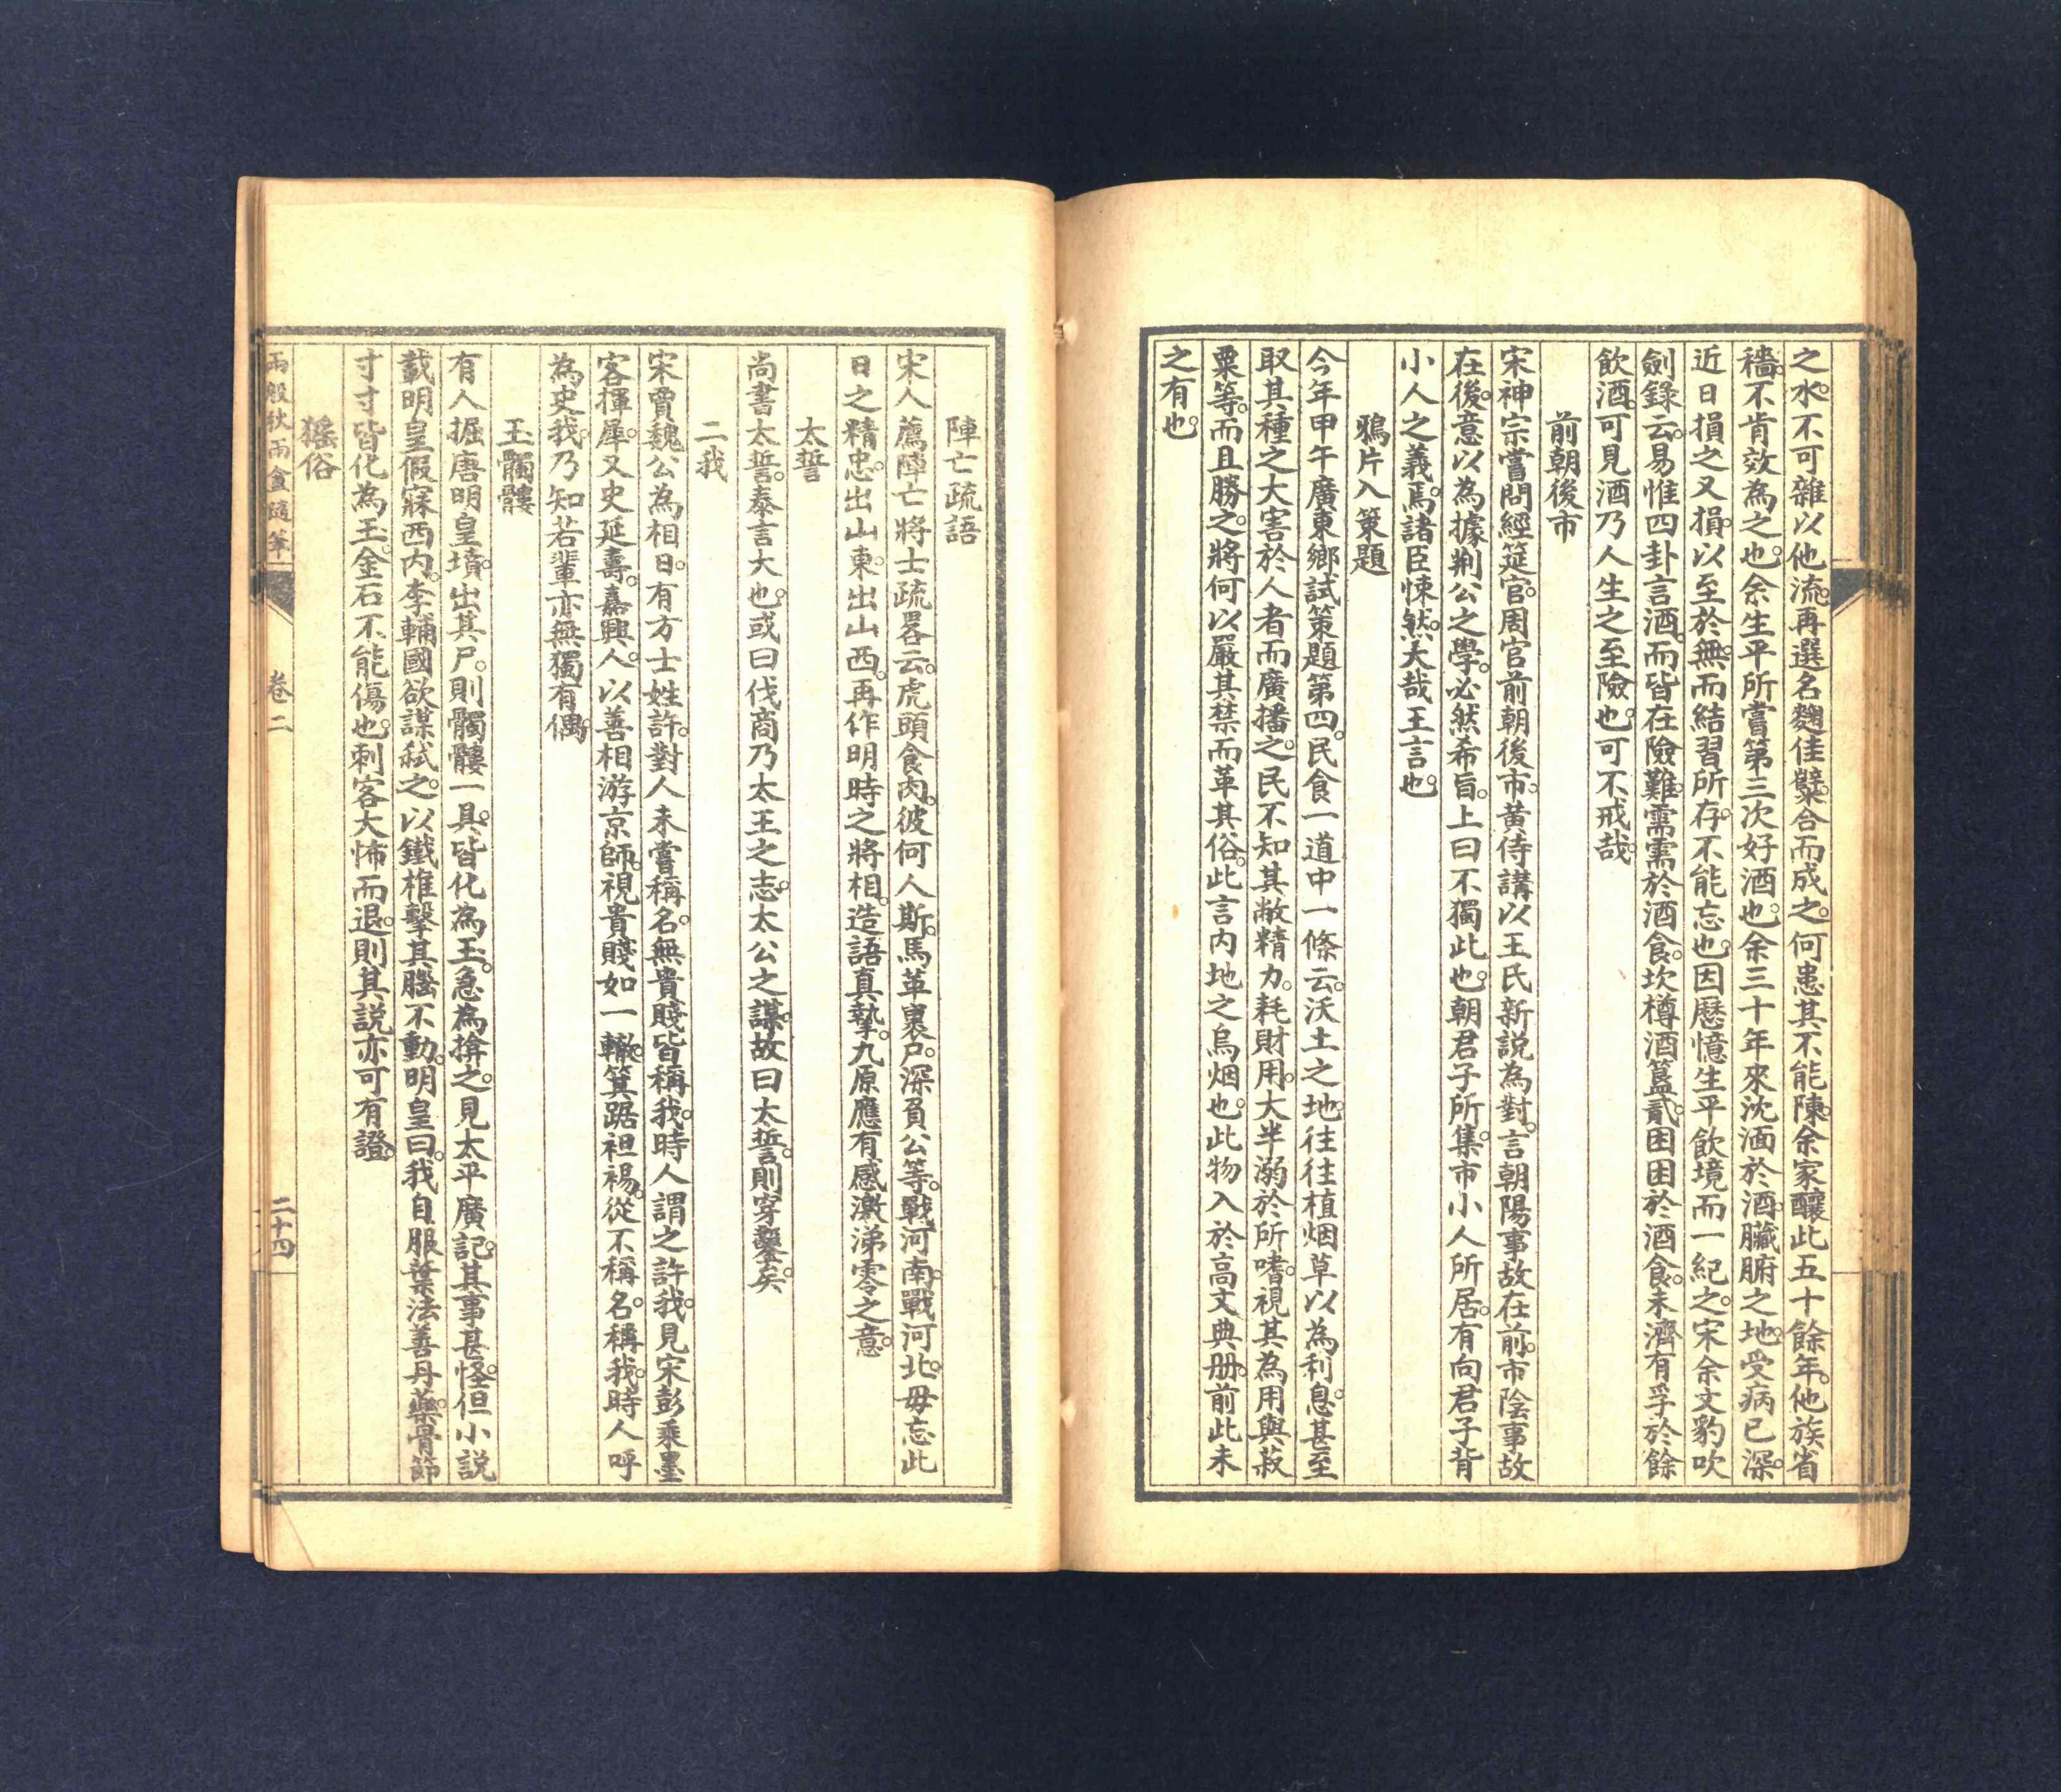 之水。不可雜以他流。再選名麴佳糵。合而成之。何患其不能陳。余家釀此五十餘年。他族省
穡。不肯效為之也。余生平所嘗第三次好酒也。余三十年來沈湎於酒。臟腑之地。受病已深。
近日損之又損。以至於無。而結習所存。不能忘也。因歷憶生平飲境而一紀之。宋余文豹吹
劍錄云。易惟四卦言酒。而皆在險難。需需於酒食。坎樽酒簋貳。困困於酒食。未濟有孚於餘
飲酒。可見酒乃人生之至險也。可不戒哉。
前朝後市
宋神宗嘗問經筵官。周官前朝後市。黃侍講以王氏新說為對。言朝陽事故在前。市陰事故
在後。意以為據荆公之學。必然希旨。上曰不獨此也。朝君子所集。市小人所居。有向君子背
小人之義焉。諸臣悚然。大哉王言也。
鴉片入策題
今年甲午廣東鄉試策題第四。民食一道中一條云。沃土之地。往往植烟草以為利息。甚至
取其種之大害於人者而廣播之。民不知其敝精力。耗財用。大半溺於所嗜。視其為用與菽
粟等。而且勝之。將何以嚴其禁而革其俗。此言內地之烏烟也。此物入於高文典册。前此未
之有也。
陣亡疏語
宋人薦陣亡將士疏畧云。虎頭食肉。彼何人斯。馬革裹尸。深負公等。戰河南。戰河北。毋忘此
日之精忠。出山東。出山西。再作明時之將相。造語真摯。九原應有感激涕零之意。
太誓
尚書太誓。泰言大也。或曰伐商乃太王之志。太公之謀。故曰太誓。則穿鑿矣。
二我
宋賈魏公為相日。有方士姓許。對人未嘗稱名。無貴賤皆稱我。時人謂之許我。見宋彭乘墨
客揮犀。又史延壽。嘉興人。以善相游京師。視貴賤如一轍。箕踞袒裼。從不稱名。稱我。時人呼
為史我。乃知若輩亦無獨有偶。
玉髑髏
有人掘唐明皇墳。出其尸。則髑髏一具。皆化為玉。急為揜之。見太平廣記。其事甚怪。但小說
載明皇假寐西內。李輔國欲謀弒之。以鐵椎擊其腦不動。明皇曰。我自服葉法善丹藥。骨節
寸寸皆化為玉。金石不能傷也。刺客大怖而退。則其說亦可有證。
猺俗
兩般秋雨盦隨筆 卷二 二十四